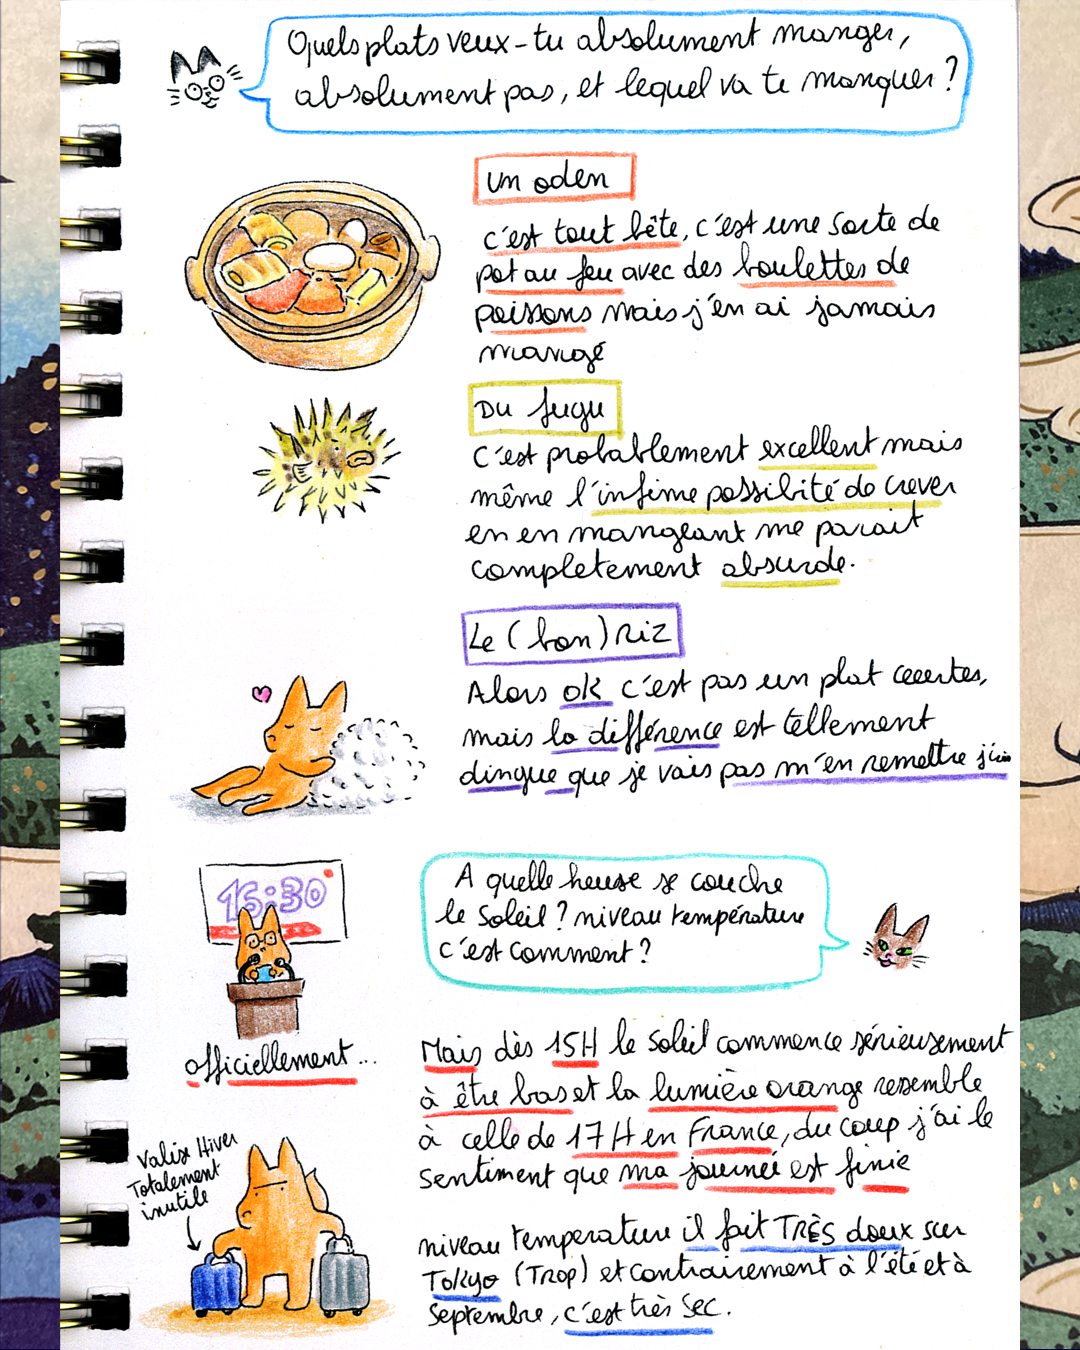 Quels plats veux-tu absolument manger,
absolument pas, et lequel va te manquer ?
un oden
c'est tout bête, c'est une sorte de
pot au feu avec des boulettes de
poissons mais j'en ai jamais
mangé
Du fugu
c'est probablement excellent mais
même l'infime possibité de crever
en en mangeant me parait
completement absurde.
Le (bon) riz
Alors ok c'est pas un plat ceeertes,
mais la différence est tellement
dingue que je vais pas m'en remettre
16:30
officiellement...
A quelle heure se couche
le soleil ? niveau température
c'est comment ?
Mais dès 15H le soleil commence sérieusement
à être bas et la lumière orange ressemble
à celle de 17H en France, du coup j'ai le
sentiment que ma journée est finie
Valise Hiver
Totalement
inutile
niveau temperature il fait TRÈS doux sur
Tokyo (Trop) et contrairement à l'été et à
Septembre, c'est très sec.